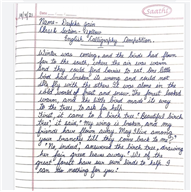 Saathi
Name:- Daksha Jain
English Calligraphy Competition
Winter was coming, and the birds had flown
far to the south, where the air was warm
and they could find berries to eat. One little
bird had broken its wing and could not
fly with the others. It was alone in the
cold world of frost and snow. The forest looked
warm, and the little bird made its way
to the trees to ask for help.
First it came to a birch tree. "Beautiful birch
tree," it said, "my wing is broken, and my
friends have flown away. May I live among
your branches till they come back to me?"
"No, indeed," answered the birch tree, drawing
her fair green leaves away. "We of the
great forest have our own birds to help. I
can do nothing for you."